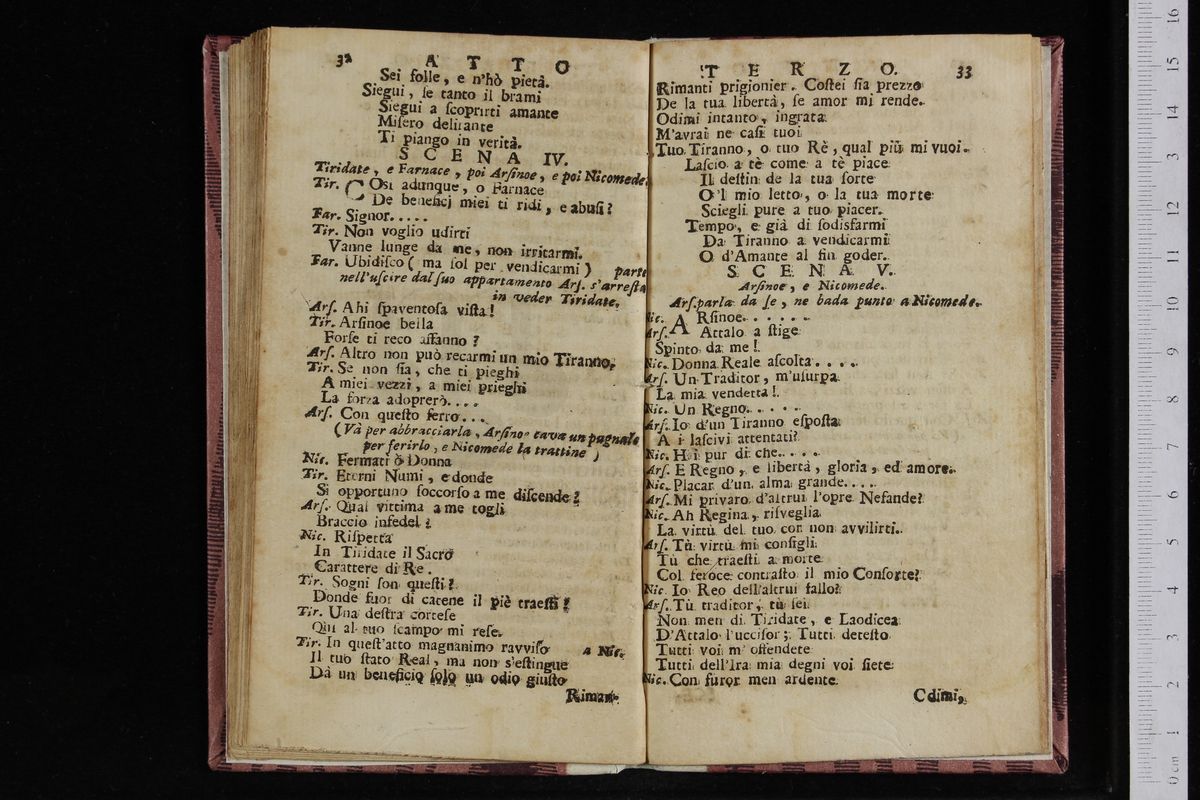 32 A T T O
Sei folle, e n'hò pietà.
Siegui, se tanto il brami
Siegui a scoprirti amante
Misero delirante
Ti piango in verità.
S C E N A IV.
Tiridate, e Farnace, poi Arsinoe, e poi Nicomede.
Tir. COsì adunque, o Farnace
De beneficj miei ti ridi, e abusi?
Far. Signor.....
Tir. Non voglio udirti
Vanne lunge da me, non irritarmi.
Far. Ubidisco ( ma sol per vendicarmi ) parte
nell'uscire dal suo appartamento Ars. s'arresta
in veder Tiridate.
Ars. Ahi spaventosa vista!
Tir. Arsinoe bella
Forse ti reco affanno ?
Ars. Altro non può recarmi un mio Tiranno.
Tir. Se non sia, che ti pieghi
A miei vezzi, a miei prieghi
La forza adoprerò....
Ars. Con questo ferro...
(Và per abbracciarla, Arsinoe cava un pugnale
per ferirlo, e Nicomede la trattine )
Nic. Fermati ò Donna
Tir. Eterni Numi, e donde
Si opportuno soccorso a me discende?
Ars. Qual vittima a me togli
Braccio infedel ?
Nic. Rispetta
In Tiridate il Sacro
Carattere di Re.
Tir. Sogni son questi?
Donde fuor di catene il piè traesti?
Tir. Una destra cortese
Qui al tuo scampo mi rese.
Tir. In quest'atto magnanimo ravviso a Nic.
Il tuo stato Real, ma non s'estingue
Dà un beneficio solo un odio giusto
Riman-
T E R Z O. 33
Rimanti prigionier. Costei sia prezzo
De la tua libertà, se amor mi rende.
Odimi intanto, ingrata
M'avrai ne casi tuoi
Tuo Tiranno, o tuo Rè, qual più mi vuoi.
Lascio a tè come a tè piace
Il destin de la tua sorte
O'l mio letto, o la tua morte
Sciegli pure a tuo piacer.
Tempo, e già di sodisfarmi
Da Tiranno a vendicarmi
O d'Amante al fin goder.
S C E N A V.
Arsinoe, e Nicomede.
Ars. parla da se, ne bada punto a Nicomede.
Nic. ARsinoe......
Ars. Attalo a stige
Spinto da me !
Nic. Donna Reale ascolta....
Ars. Un Traditor, m'usurpa
La mia vendetta !
Nic. Un Regno.....
Ars. Io d'un Tiranno esposta
A i lascivi attentati?
Nic. Hai pur di che....
Ars. E Regno, e libertà, gloria, ed amore.
Nic. Placar d'un alma grande....
Ars. Mi privaro d'altrui l'opre Nefande?
Nic. Ah Regina, risveglia
La virtù del tuo cor non avvilirti.
Ars. Tù virtù mi consigli
Tù che traesti a morte
Col feroce contrasto il mio Consorte?
Nic. Io Reo dell'altrui fallo?
Ars. Tù traditor, tù sei
Non men di Tiridate, e Laodicea
D'Attalo l'uccisor; Tutti detesto
Tutti voi m'offendete
Tutti dell'Ira mia degni voi siete
Nic. Con furor men ardente
Odimi,